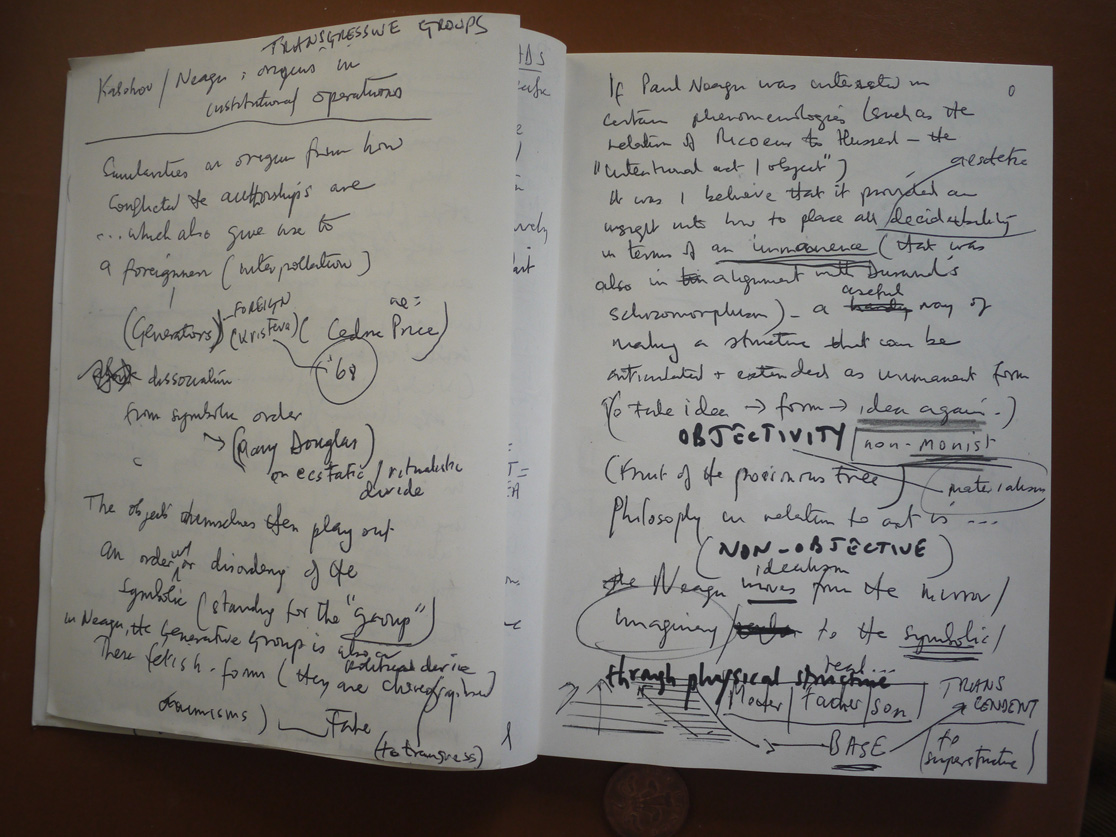 TRANSGRESSIVE GROUPS
/ Neagu : origins in
institutional operations
an origin from how
conflicted the authorships are
... which also give use to
a foreignness (interpollation)
(Generators) FOREIGN (Kristeva) ae = (Cedric Price)
'68
dissociation
from symbolic order
→ (Mary Douglas)
on ecstatic / ritualistic
divide
The objects themselves then play out
an order or disordering of the
symbolic (standing for the "group")
in Neagu, the Generative Group is also a
political device
These fetish-forms (they are choreographed
) — Fake
(to transgress)
If Paul Neagu was interested in
certain phenomenologies (such as the
relation of Ricoeur to Husserl - the
"intentional act / object")
aesthetic
it was I believe that it provided an
insight into how to place all decidability
in terms of an immanence (that was
also in alignment with Durand's
schizomorphism) - a useful way of
making a structure that can be
articulated + extended as immanent form
(to take idea → form → idea again.)
OBJECTIVITY non-monist
(Fruit of the poisonous tree) materialism
Philosophy in relation to art is ...
(NON-OBJECTIVE)
idealism
Neagu moves from the mirror/
Imaginary to the symbolic/
real...
through physical structure
Mother / Father / son TRANSCENDENT
BASE (to superstructure)